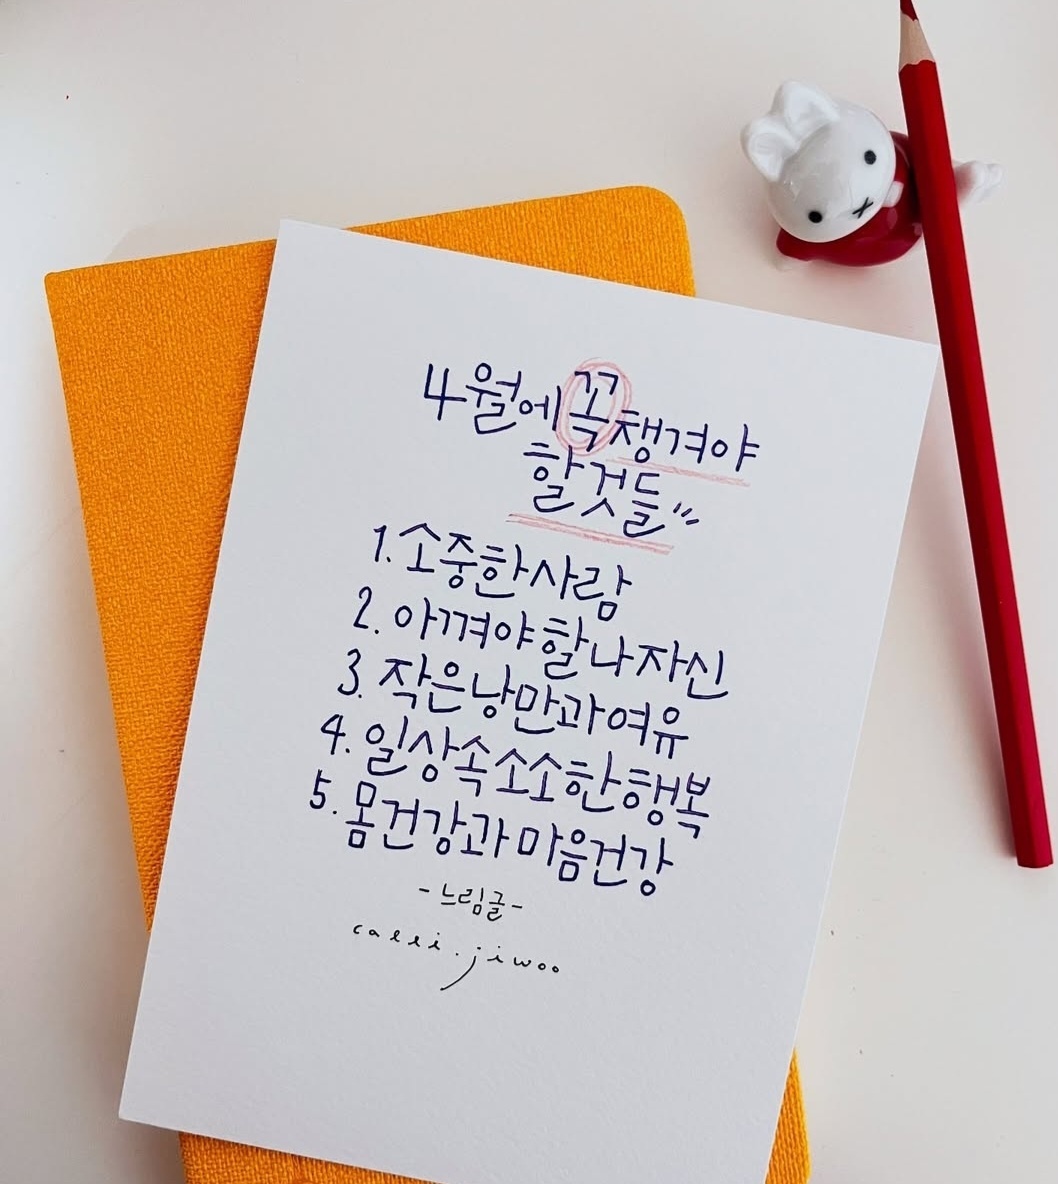 4월에 꼭 챙겨야
할 것들"
1. 소중한 사람
2. 아껴야 할 나 자신
3. 작은 낭만과 여유
4. 일상 속 소소한 행복
5. 몸 건강과 마음 건강
- 느림글 -
calli.jiwoo